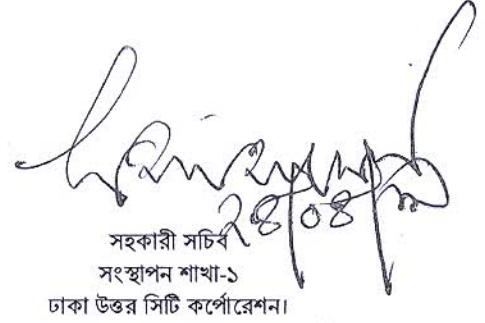 ২৪/০৪/
সহকারী সচিব
সংস্থাপন শাখা-১
ঢাকা উত্তর সিটি কর্পোরেশন।